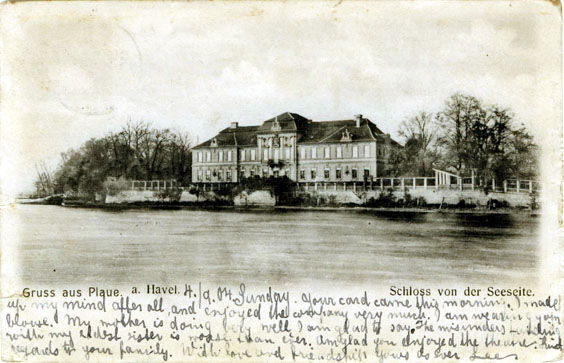 Gruss aus Plaue. a. Havel. 4./9.04 Sunday. Your card came this morning. I made
Schloss von der Seeseite.
up my mind after all, and enjoyed the company very much. I am wearing your
blouse. My mother is doing very well I am glad to say. The misunderstanding
with my eldest sister is worse than ever. Am glad you enjoyed the theatre. Kind
regards to your family. With love and friendship yours as ever